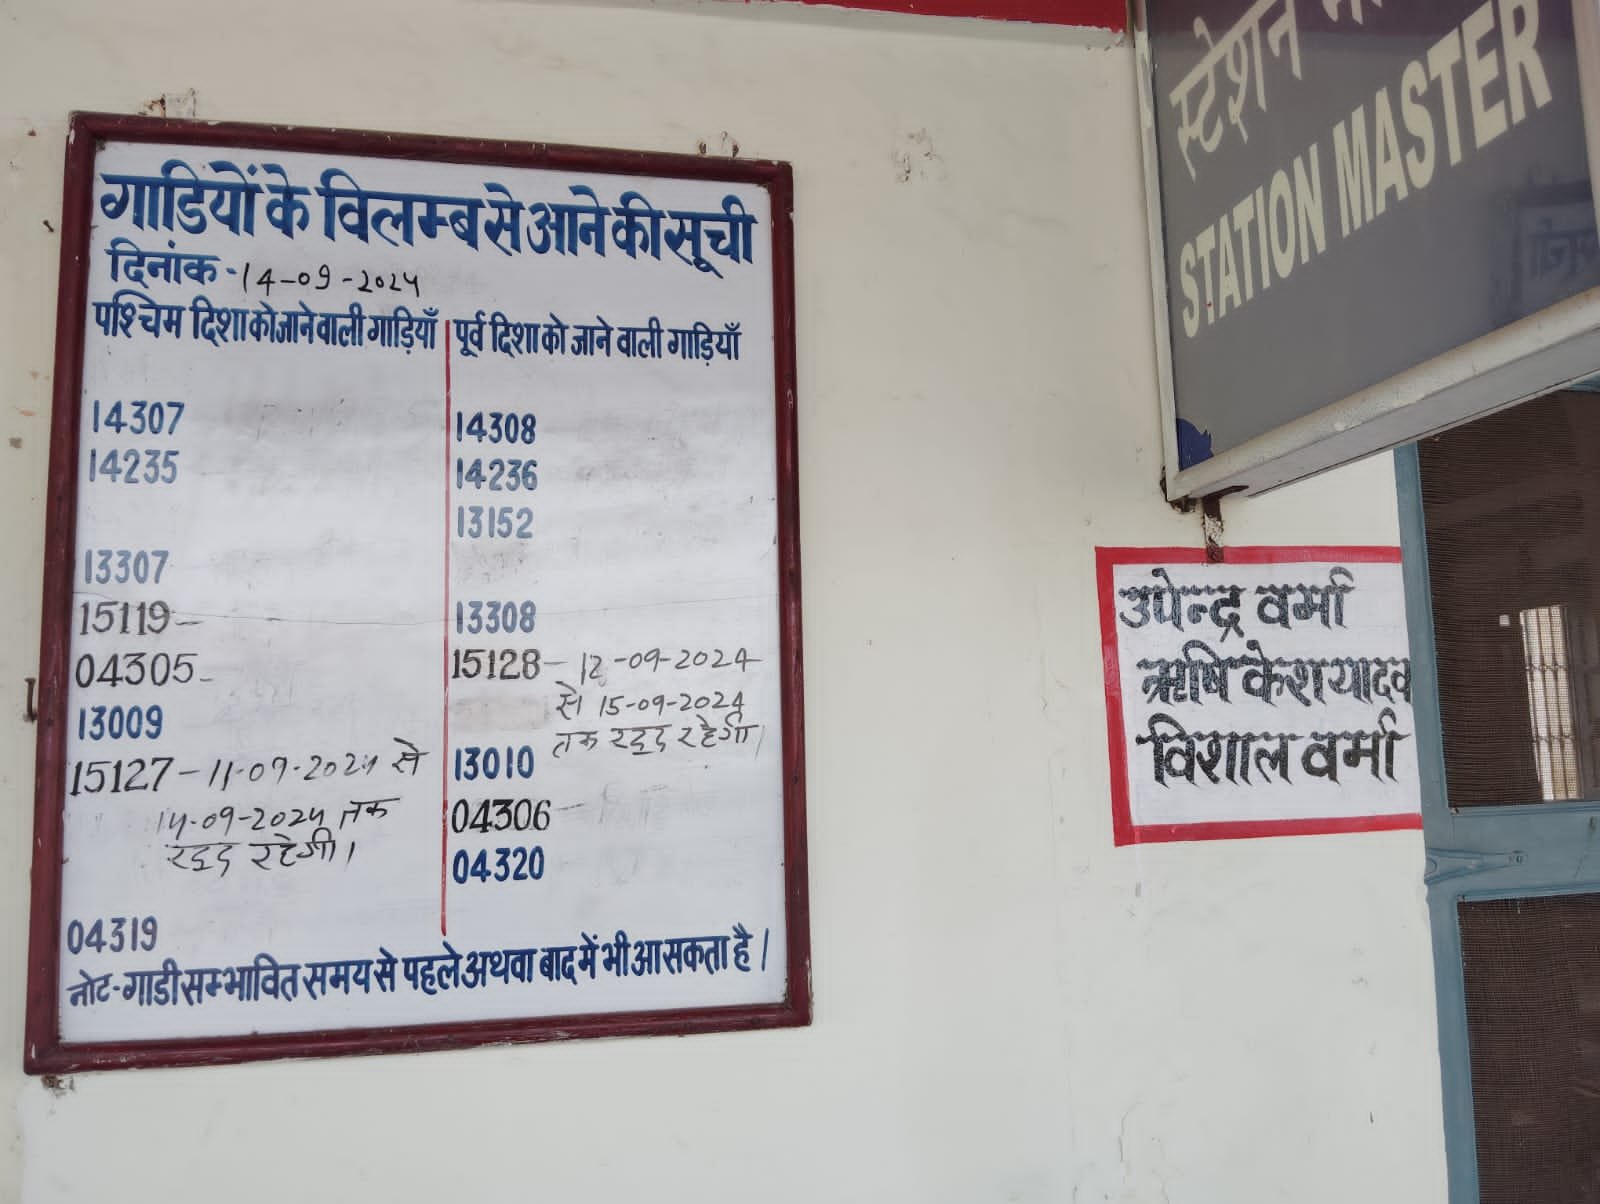 गाडियों के विलम्ब से आने की सूची
दिनांक - 14-09-2024
पश्चिम दिशा को जाने वाली गाड़ियाँ
14307
14235
13307
15119 -
04305 -
13009
15127 - 11-09-2024 से
14-09-2024 तक
रद्द रहेगी।
04319
पूर्व दिशा को जाने वाली गाड़ियाँ
14308
14236
13152
13308
15128 - 12-09-2024
से 15-09-2024
तक रद्द रहेगी।
13010
04306
04320
नोट-गाडी सम्भावित समय से पहले अथवा बाद में भी आ सकता है।
स्टेशन
STATION MASTER
उपेन्द्र वर्मा
ऋषि केश यादव
विशाल वर्मा